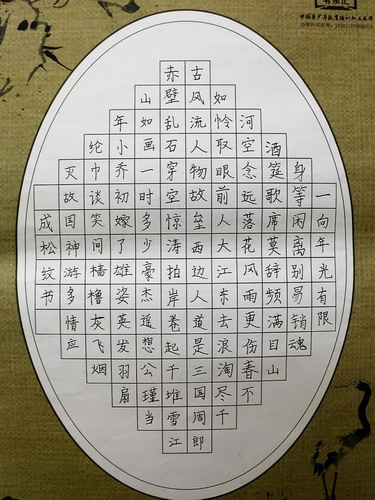 一向年光有限
身等闲离别易销魂
酒筵歌席莫辞频满目山
河空念远落花风雨更伤春不
如怜取眼前人大江东去浪淘尽千
古风流人物故垒西边人道是三国周郎
赤壁乱石穿空惊涛拍岸卷起千堆雪江
山如画一时多少豪杰遥想公瑾当
年小乔初嫁了雄姿英发羽扇
纶巾谈笑间樯橹灰飞烟
灭故国神游多情应
成松纹书